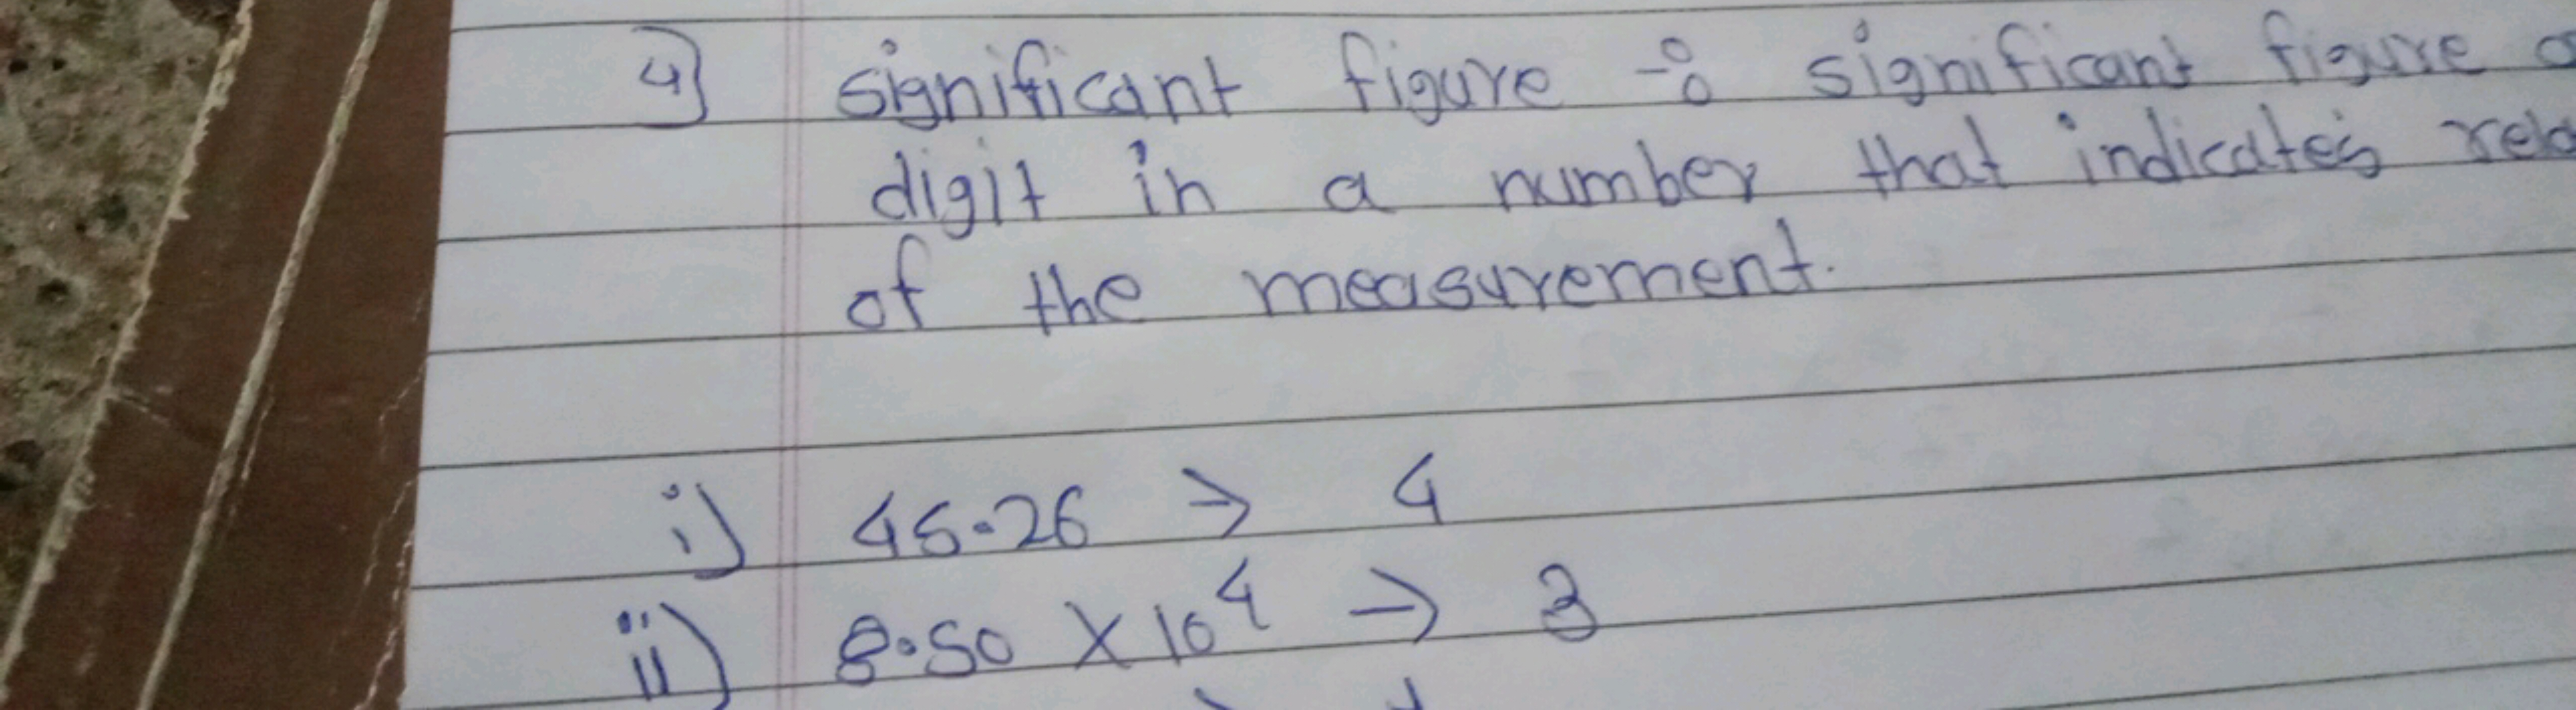 4) significant figure :- significant figure
digit in a number that indicates
of the measurement.
i) 45.26 → 4
ii) 8.50 × 10⁴ → 3